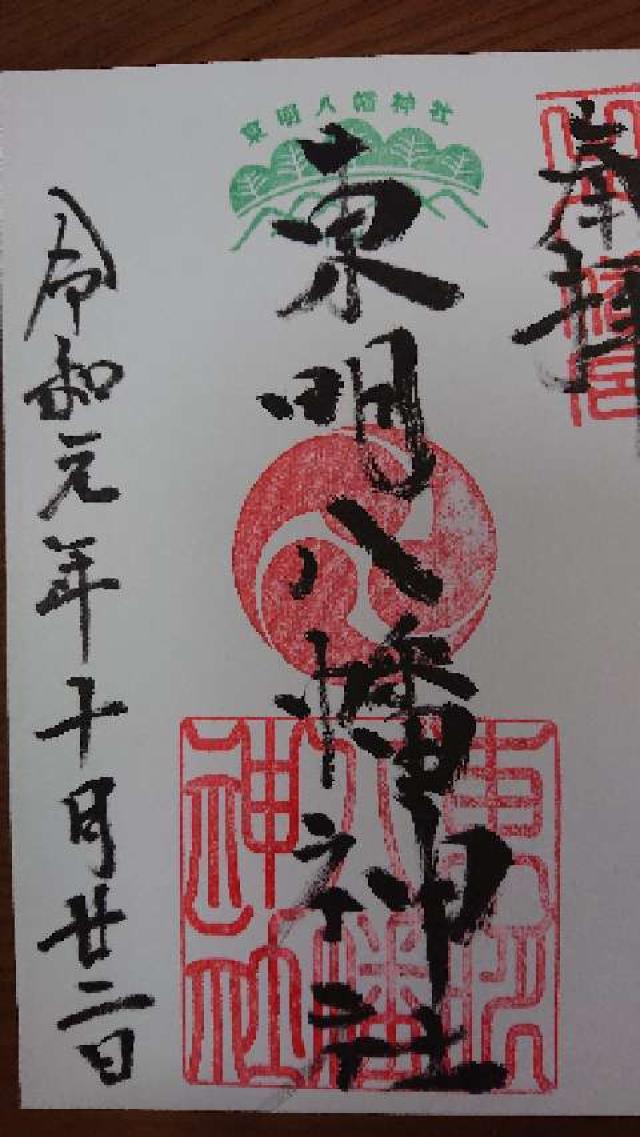 奉拝
東明八幡神社
東明八幡神社
東明八幡神社
令和元年十月廿二日